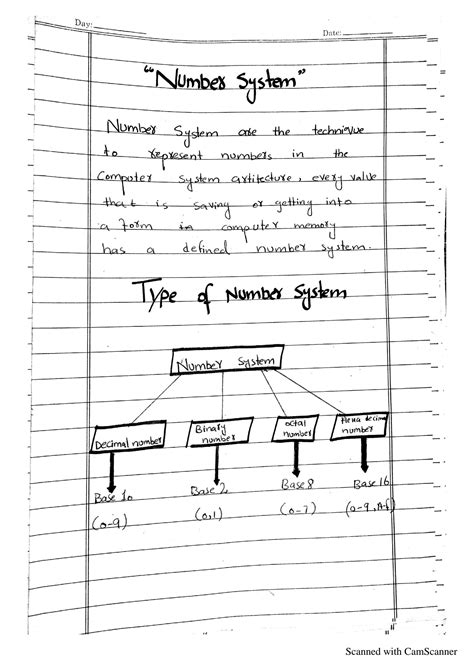 Day:
Date:
"Number System"
Number System are the technievue
to represent numbers in the
Computer system artitecture, every value
that is saving or getting into
a form in computer memory
has a defined number system.
Type of Number System
Number System
Decimal number
Binary number
octal number
Hexa decimal number
Base 10
Base 2
Base 8
Base 16
(0-9)
(0,1)
(0-7)
(0-9, A-f)
Scanned with CamScanner